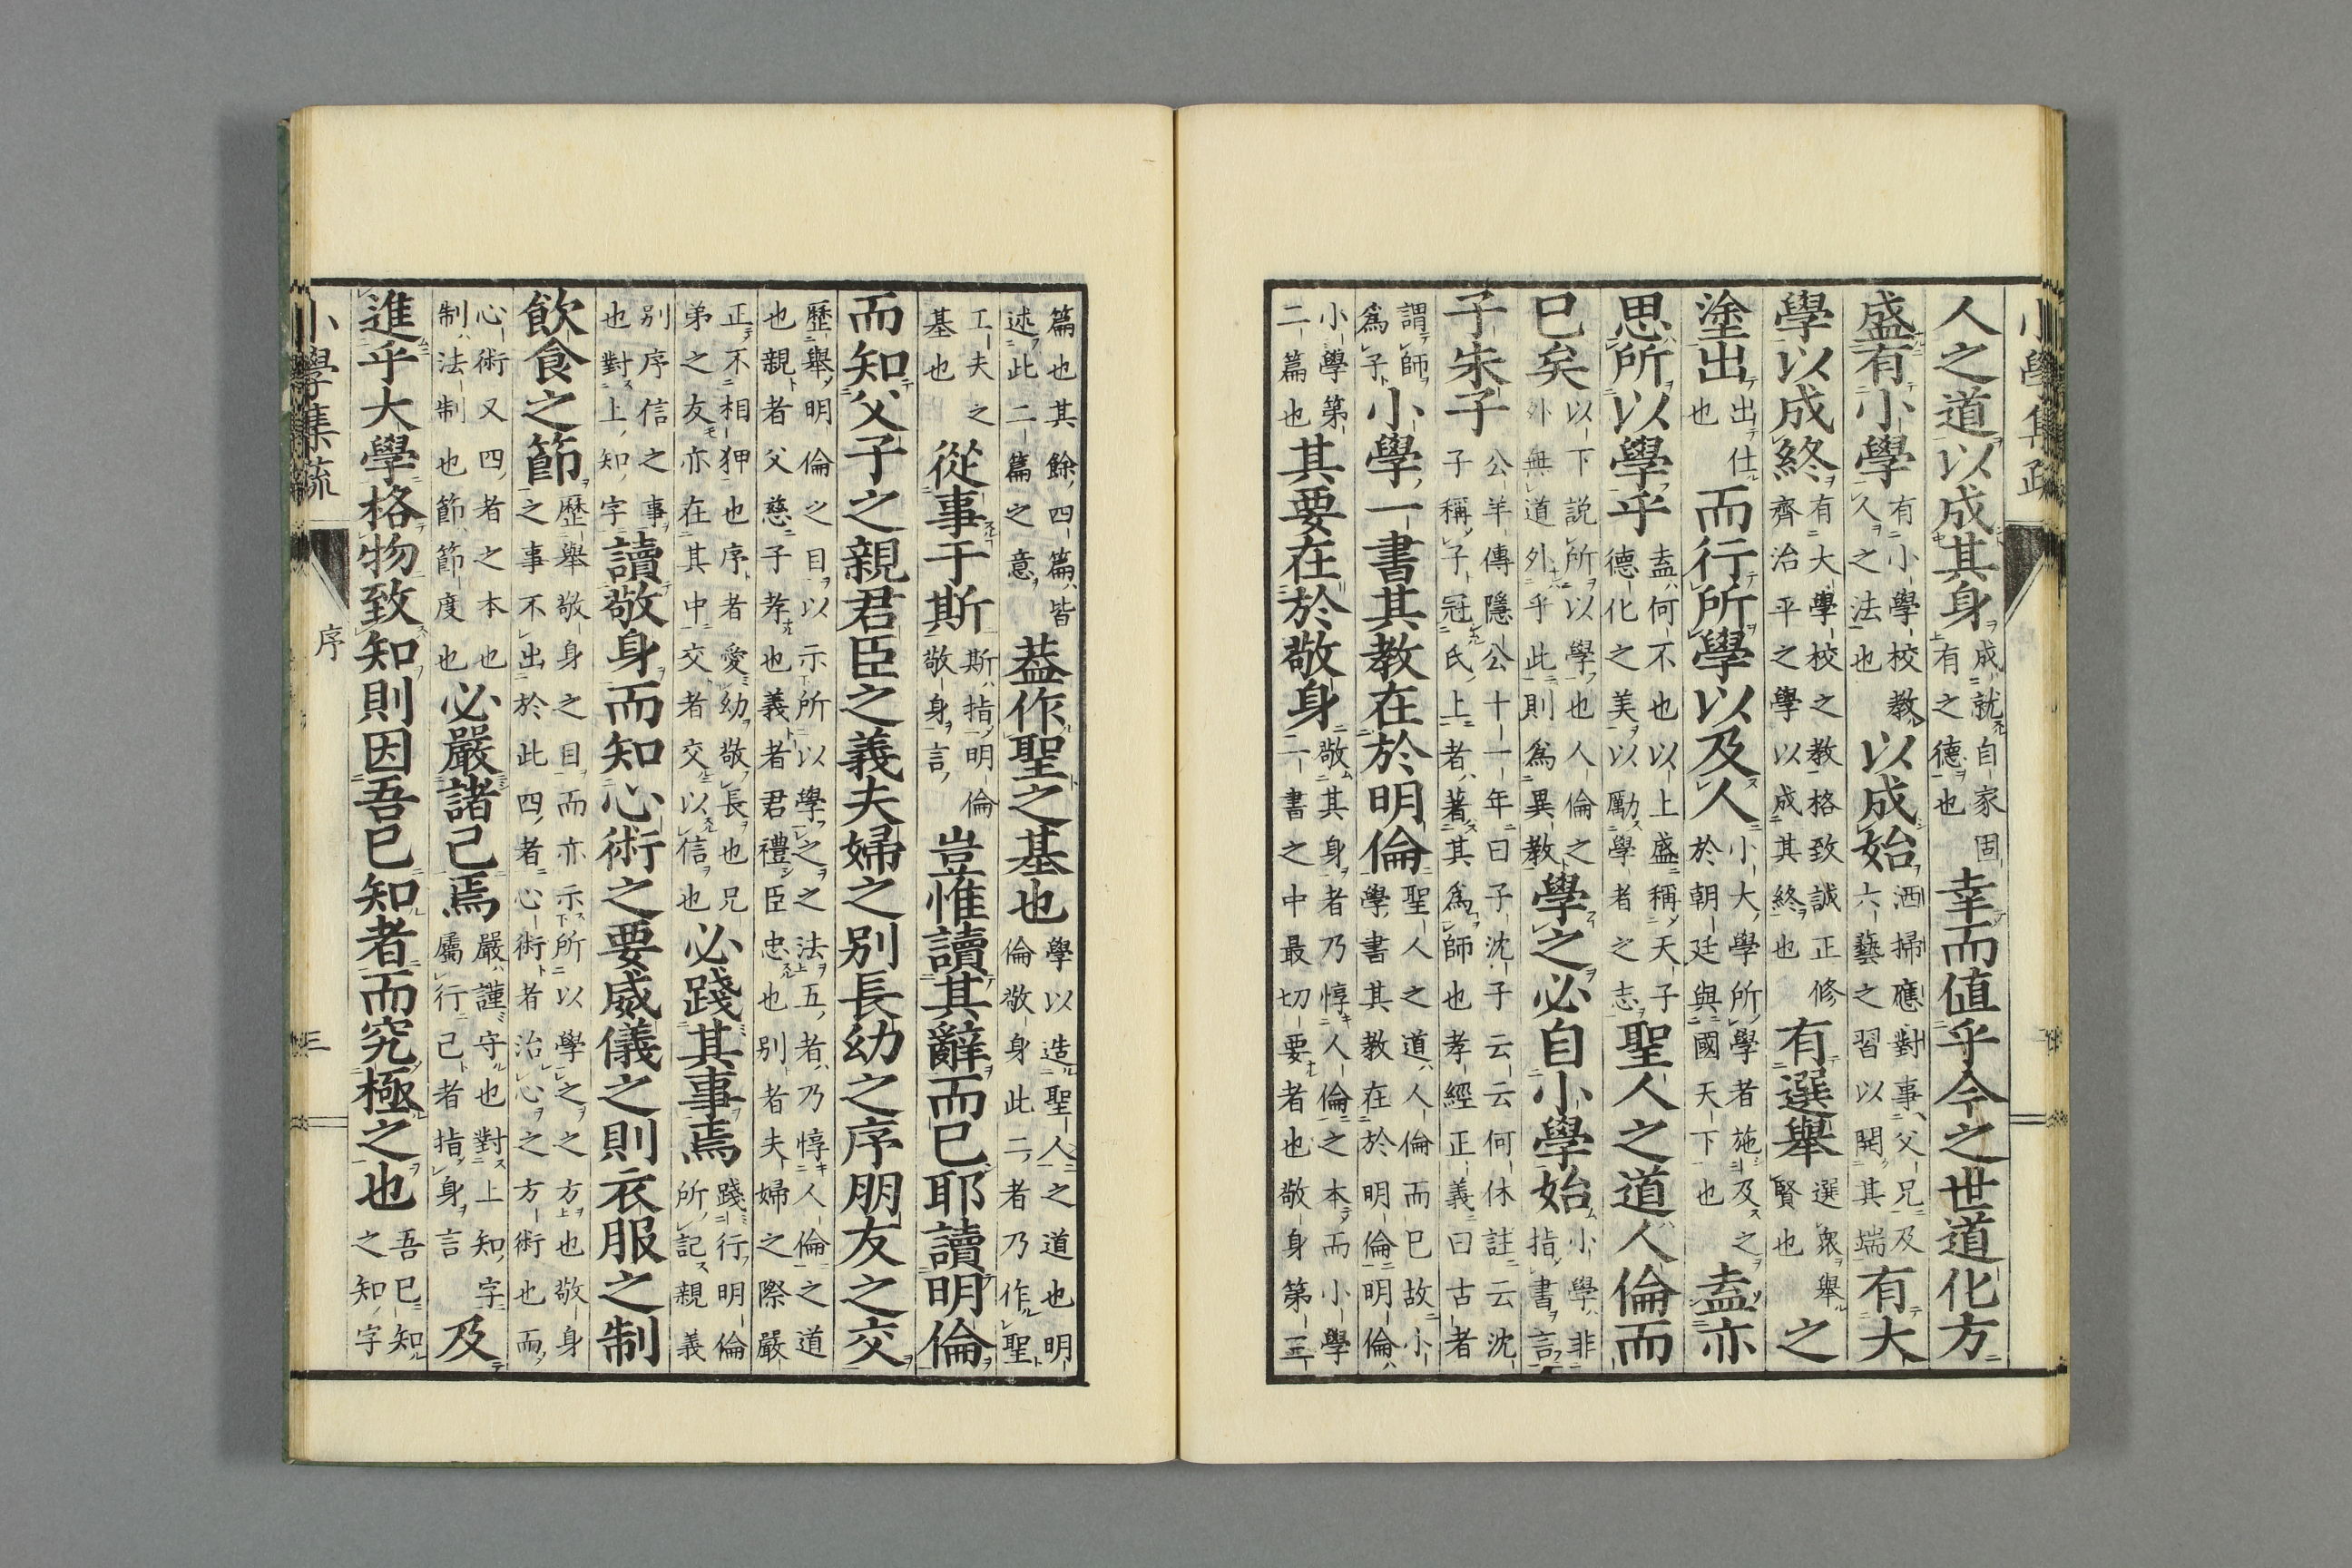 小學集疏
人之道以成其身成就自家固有之德也幸而値乎今之世道化方
盛有小學有小學校教人之法也以成始洒掃應對事父兄及六藝之習以開其端有大
學以成終有大學校之教格致誠正修齊治平之學以成其終也有選舉選衆舉賢也之
塗出出仕也而行所學以及人小大學所學者施及之於朝廷與國天下也盍亦
思所以學乎盍何不也以上盛稱天子德化之美以勵學者之志聖人之道人倫而
已矣以下説所以學也人倫之外無道外乎此則爲異教學之必自小學始小學非指書言
子朱子公羊傳隱公十一年曰子沈子云云何休註云沈子稱子冠氏上者著其爲師也孝經正義曰古者
謂師爲子小學一書其教在於明倫聖人之道人倫而已故小學書其教在於明倫明倫
小學第二篇也其要在於敬身敬其身者乃惇人倫之本而小學二書之中最切要者也敬身第三
篇也其餘四篇皆述此二篇之意蓋作聖之基也學以造聖人之道也明倫敬身此二者乃作聖
工夫之基也從事于斯斯指明倫敬身言豈惟讀其辭而已耶讀明倫
而知父子之親君臣之義夫婦之別長幼之序朋友之交
歷舉明倫之目以示所以學之之法五者乃惇人倫之道也親者父慈子孝也義者君禮臣忠也別者夫婦之際嚴
正不相狎也序者愛幼敬長也兄弟之友亦在其中交者交以信也必踐其事焉踐行明倫所記親義
別序信之事也對上知字讀敬身而知心術之要威儀之則衣服之制
飲食之節歷舉敬身之目而亦示所以學之之方也敬身之事不出於此四者心術者治心之方術也而
心術又四者之本也制法制也節節度也必嚴諸己焉嚴謹守也對上知字屬行己者指身言及
進乎大學格物致知則因吾已知者而究極之也吾已知之知字
小學集疏 序 三